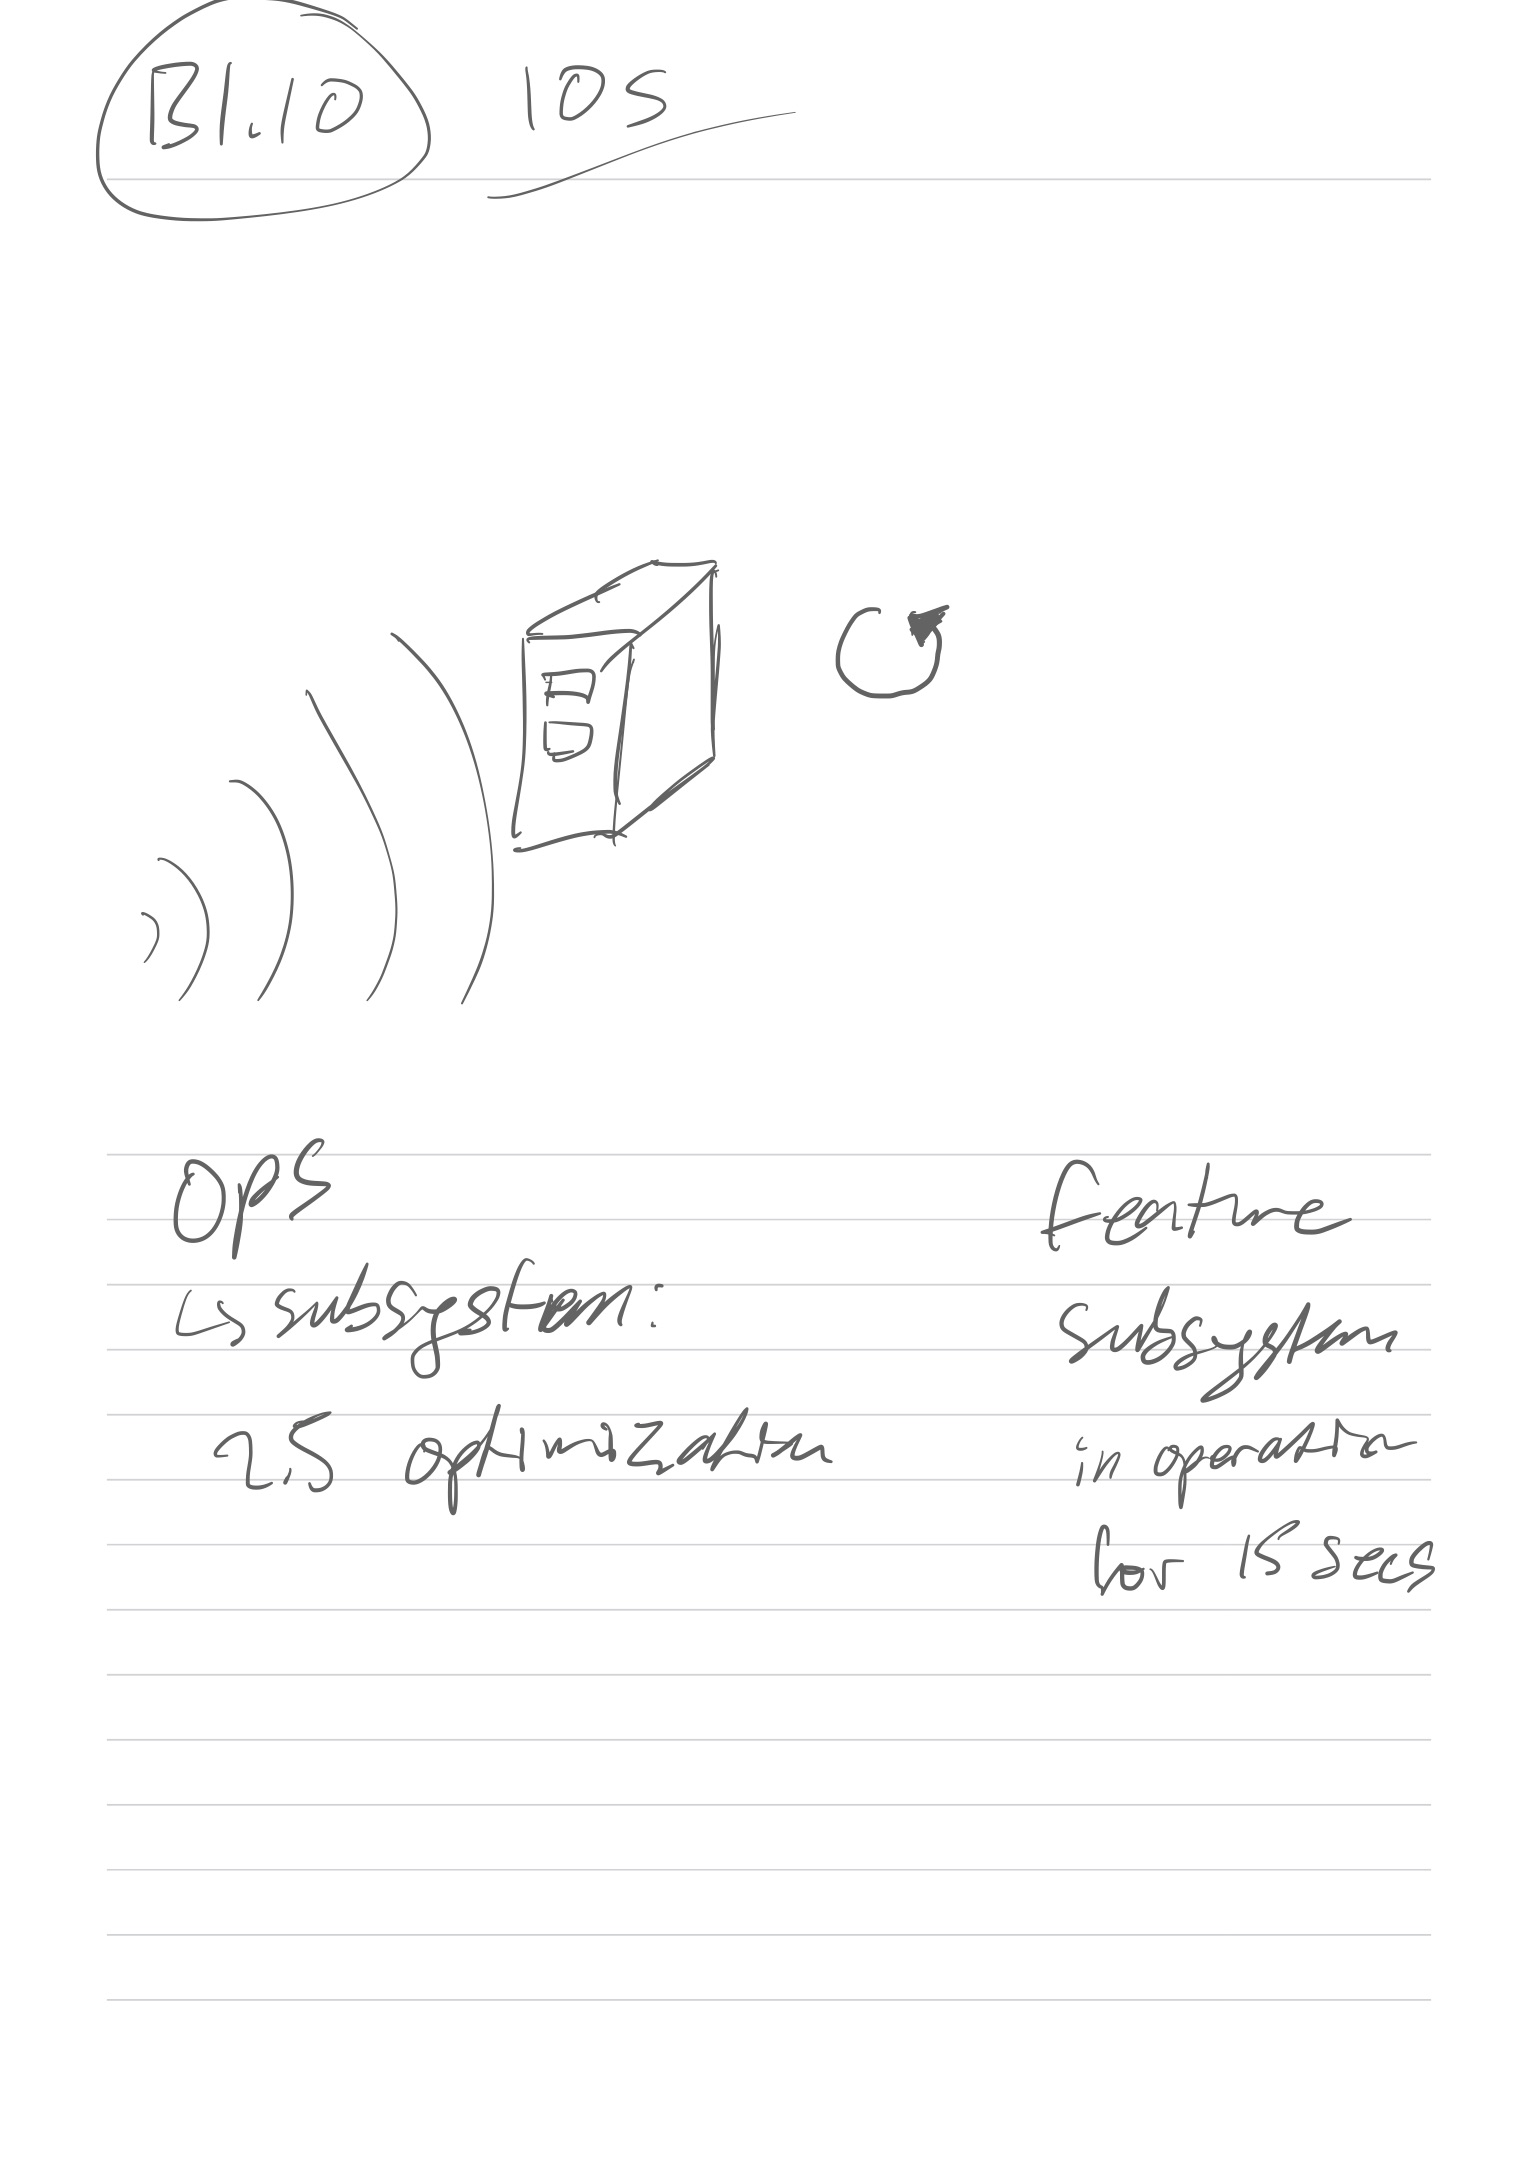 B1.10 10s
OPS
↳ subsystem:
2.5 optimization
feature
subsystem
in operation
for 15 secs